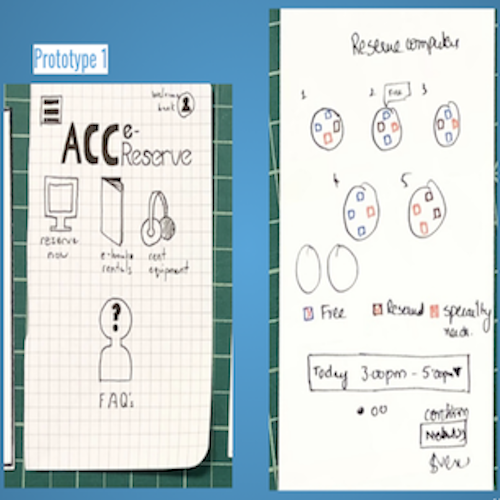 Prototype 1
welcome
back
ACC e-
Reserve
reserve
now
e-books
rentals
rent
equipment
?
FAQ's
Reserve computer
1
2
Free
3
4
5
Free
Reserved
specialty
needs.
Today 3:00pm - 5:00pm
confirm